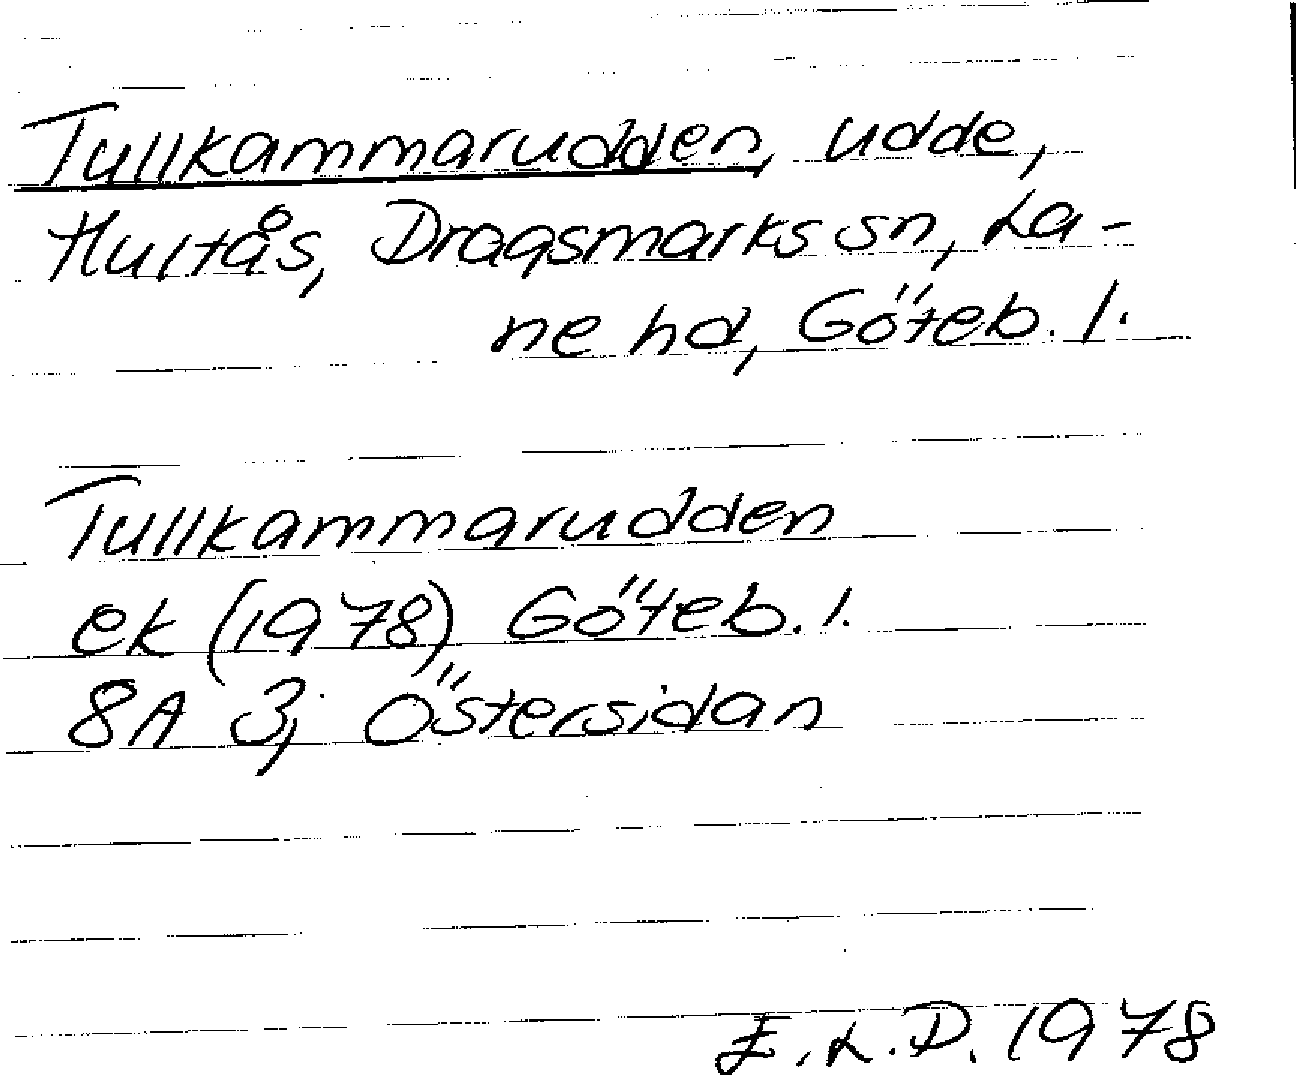 Tullkammarudden, udde,
Hultås, Dragsmarks sn, La-
ne hd, Göteb. l.
Tullkammarudden
ek (1978) Göteb. l.
8A 3; Östersidan
E.L.D. 1978